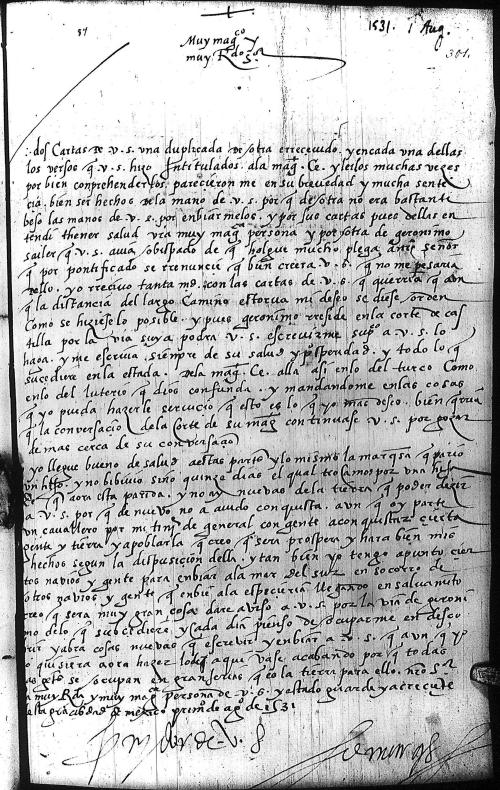 87
1531. 1 Aug.
301.
Muy magco y
muy Rdo Sor
dos Cartas de v. s. una duplicada de otra e rrecevido. y en cada una dellas
los versos q v. s. hizo Intitulados. ala mag. Ce. y leilos muchas vezes
por bien conprehenderlos, parecieron me en su brevedad y mucha sente
cia. bien ser hechos de la mano de v. s. por q de otra no era bastante
beso las manos de v. s. por enbiarmelos. y por sus cartas pues dellas en
tendi thener salud vra muy mag persona y por otra de geronimo
sailer q v. s. avia obispado de q holgue mucho plega señor
q por pontificado se rrenuncie q bien creera v. s. q no me pesaria
dello. yo rrecivo tanta md. con las cartas de v. s. q querria q aun
q la distancia del largo Camino estorva mi deseo se diese orden
Como se hiziese lo posible. y pues geronimo rreside en la corte de cas
tilla por la via suya podra v. s. escrevirme a v. s. lo
haga. y me escriva siempre de su salud y prosperidad. y todo lo q
sucediere en la estada. de la mag. Ce. alla asi en lo del turco Como
en lo del luterio q dios confunda. y mandandome en las cosas
q yo pueda hazerle servicio q esto es lo q yo mas deseo. bien qrria
q la conversacio de la corte de su mag continuase v. s. por gozar
de mas cerca de su conversacio
yo llegue bueno de salud a estas partes y lo mismo la marqsa q pario
un hijo. y no bibivio sino quinze dias el qual trocamos por una hija
q aora esta parida. y no ay nuevas de la tierra q poder dezir
a v. s. por q de nuevo no a avido conquista. aun q oy parte
un cavallero por mi tini de general con gente a conquistar cierta
gente y tierra y a poblarla q creo q sera prospera y hara bien mis
hechos segun la dispusicion della. y tan bien yo tengo a punto cier
tos navios y gente para enbiar ala mar del sur en socorro de
otros navios y gente q enbie ala especieria llegando en salvamito
creo q sera muy gran cosa dare aviso a v. s. por la via de geroni
mo delo q subcediere y cada dia pienso de ocuparme en descu
brir y abra cosas nuevas q escrevir y enbiar a v. s. q aun q yo
quisiera aora hazer lo q aqui vase acabando por q todas
se ocupan en granjerias q co la tierra para ello. nro Sr
la muy Rda y muy mag persona de v. s. y estado guarde y acreciente
desta gra cibdad de mexico primo de ago de 1531
servidor de. v. s